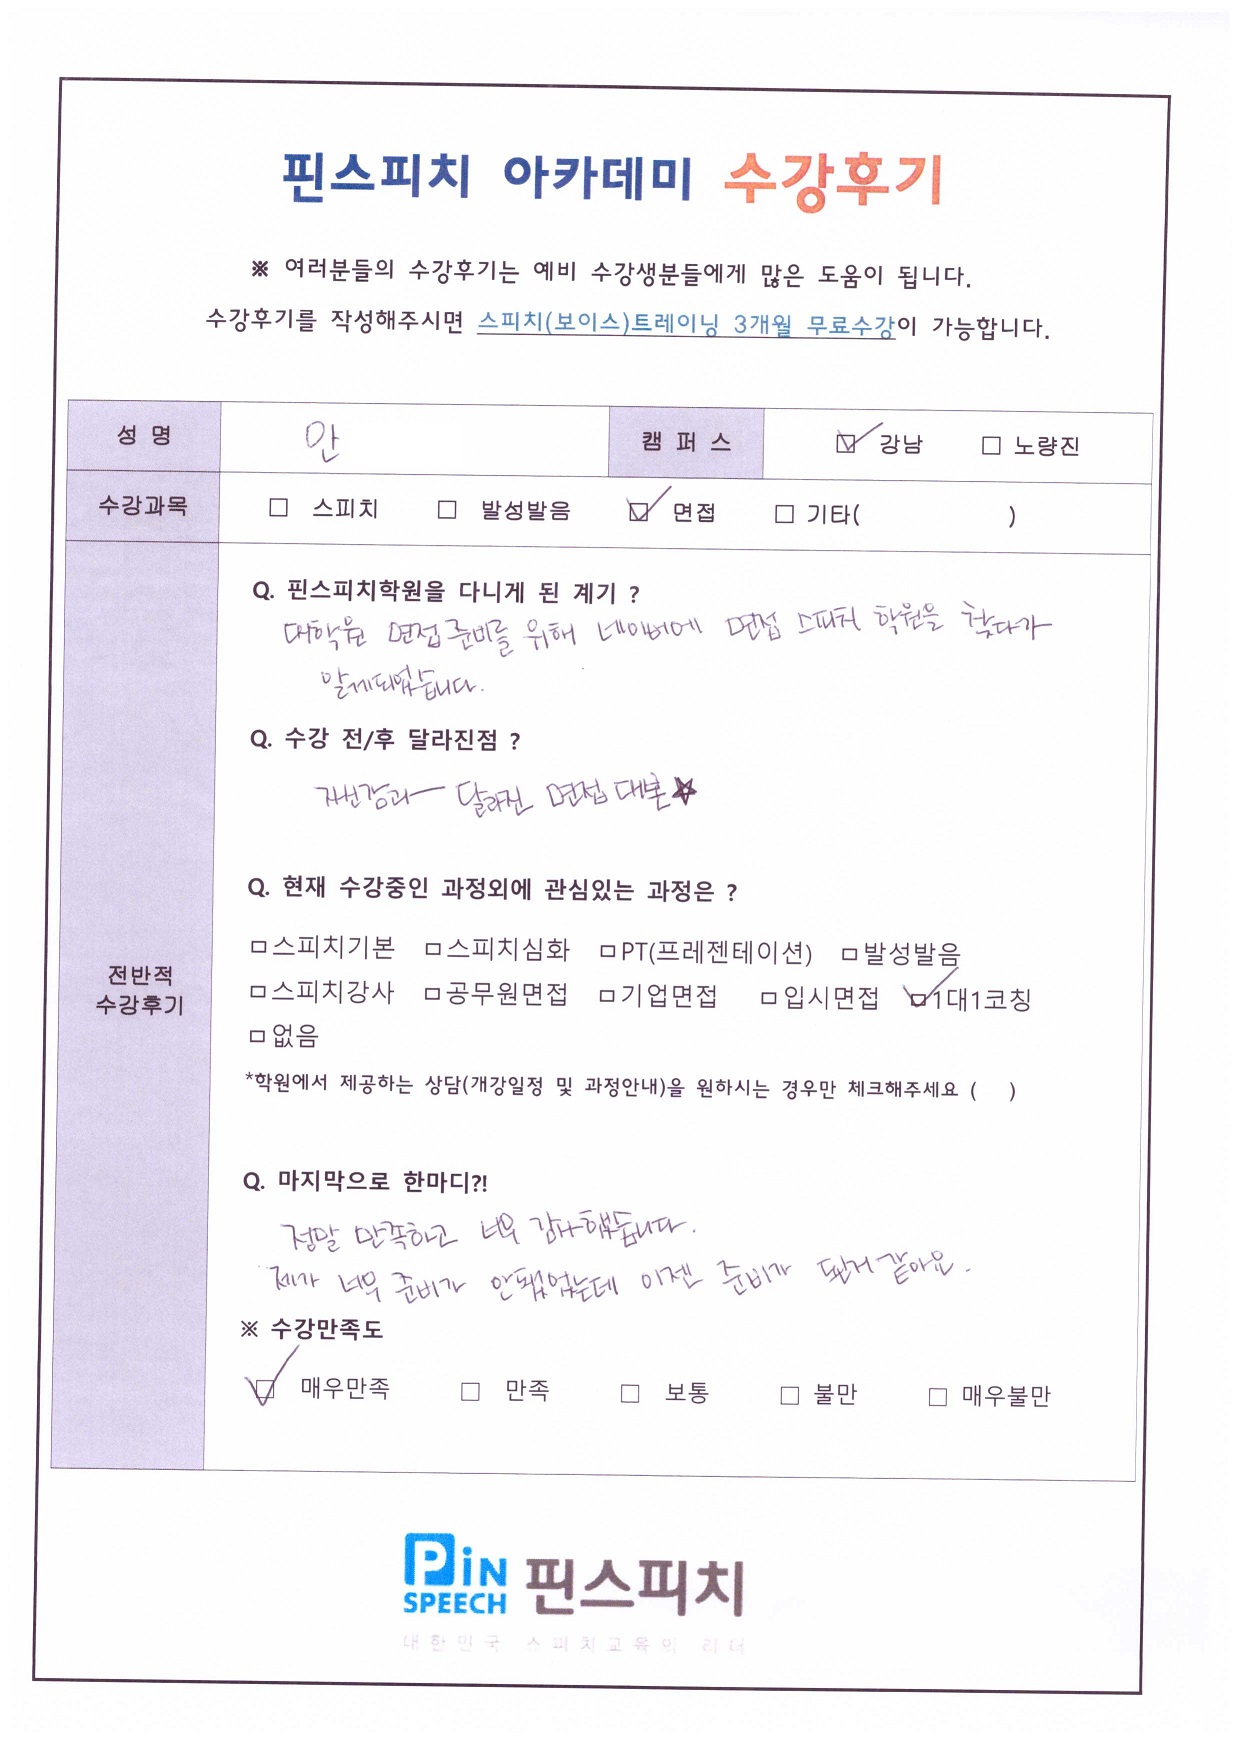 핀스피치 아카데미 수강후기
※ 여러분들의 수강후기는 예비 수강생분들에게 많은 도움이 됩니다.
수강후기를 작성해주시면 스피치(보이스)트레이닝 3개월 무료수강이 가능합니다.
성 명 안 캠 퍼 스 ☑ 강남 □ 노량진
수강과목 □ 스피치 □ 발성발음 ☑ 면접 □ 기타( )
Q. 핀스피치학원을 다니게 된 계기 ?
대학원 면접준비를 위해 네이버에 면접 스피치 학원을 찾다가
알게되었습니다.
Q. 수강 전/후 달라진점 ?
자신감과 달라진 면접 대본★
Q. 현재 수강중인 과정외에 관심있는 과정은 ?
□스피치기본 □스피치심화 □PT(프레젠테이션) □발성발음
□스피치강사 □공무원면접 □기업면접 □입시면접 ☑1대1코칭
□없음
*학원에서 제공하는 상담(개강일정 및 과정안내)을 원하시는 경우만 체크해주세요 ( )
전반적
수강후기
Q. 마지막으로 한마디?!
정말 만족하고 너무 감사했습니다.
제가 너무 준비가 안됐었는데 이젠 준비가 된거 같아요.
※ 수강만족도
☑ 매우만족 □ 만족 □ 보통 □ 불만 □ 매우불만
PiN
SPEECH 핀스피치
대한민국 스피치교육의 리더